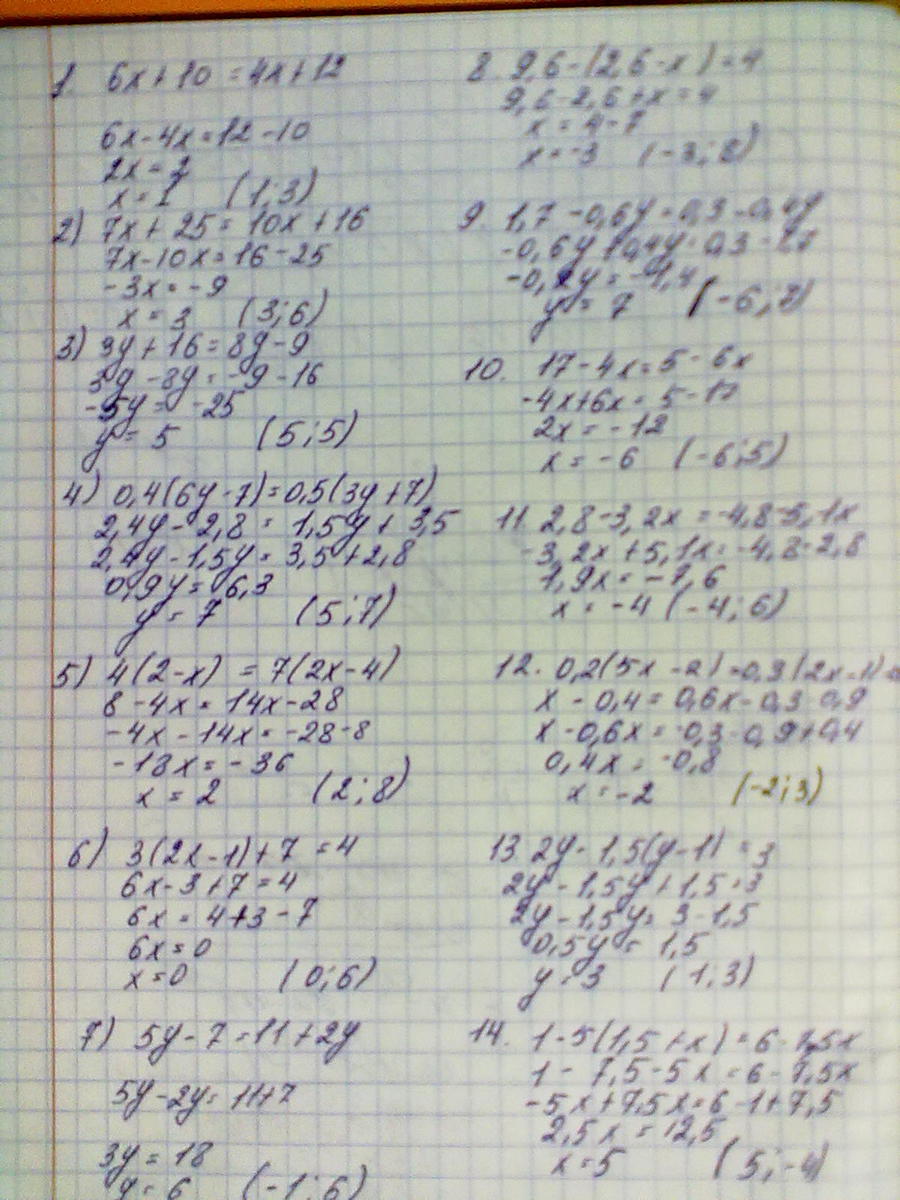 1. 6x+10 = 4x+12
6x-4x=12-10
2x=2
x=1 (1;3)
2) 7x+25=10x+16
7x-10x=16-25
-3x=-9
x=3 (3;6)
3) 3y+16=8y-9
3y-8y=-9-16
-5y=-25
y=5 (5;5)
4) 0,4(6y-7)=0,5(3y+7)
2,4y-2,8=1,5y+3,5
2,4y-1,5y=3,5+2,8
0,9y=6,3
y=7 (5;7)
5) 4(2-x) = 7(2x-4)
8-4x=14x-28
-4x-14x=-28-8
-18x=-36
x=2 (2;8)
6) 3(2x-1)+7=4
6x-3+7=4
6x=4+3-7
6x=0
x=0 (0;6)
7) 5y-7=11+2y
5y-2y=11+7
3y=18
y=6 (-1;6)
8. 9,6-(2,6-x)=4
9,6-2,6+x=4
x=4-7
x=-3 (-3;8)
9. 1,7-0,6y=0,3-0,4y
-0,6y+0,4y=0,3-1,7
-0,2y=-1,4
y=7 (-6;7)
10. 17-4x=5-6x
-4x+6x=5-17
2x=-12
x=-6 (-6;5)
11. 2,8-3,2x=-4,8-5,1x
-3,2x+5,1x=-4,8-2,8
1,9x=-7,6
x=-4 (-4;6)
12. 0,2(5x-2)=0,3(2x-1)
x-0,4=0,6x-0,3-0,9
x-0,6x=-0,3-0,9+0,4
0,4x=-0,8
x=-2 (-2;3)
13 2y-1,5(y-1)=3
2y-1,5y+1,5=3
2y-1,5y=3-1,5
0,5y=1,5
y=3 (1;3)
14. 1-5(1,5+x)=6-7,5x
1-7,5-5x=6-7,5x
-5x+7,5x=6-1+7,5
2,5x=12,5
x=5 (5;-4)